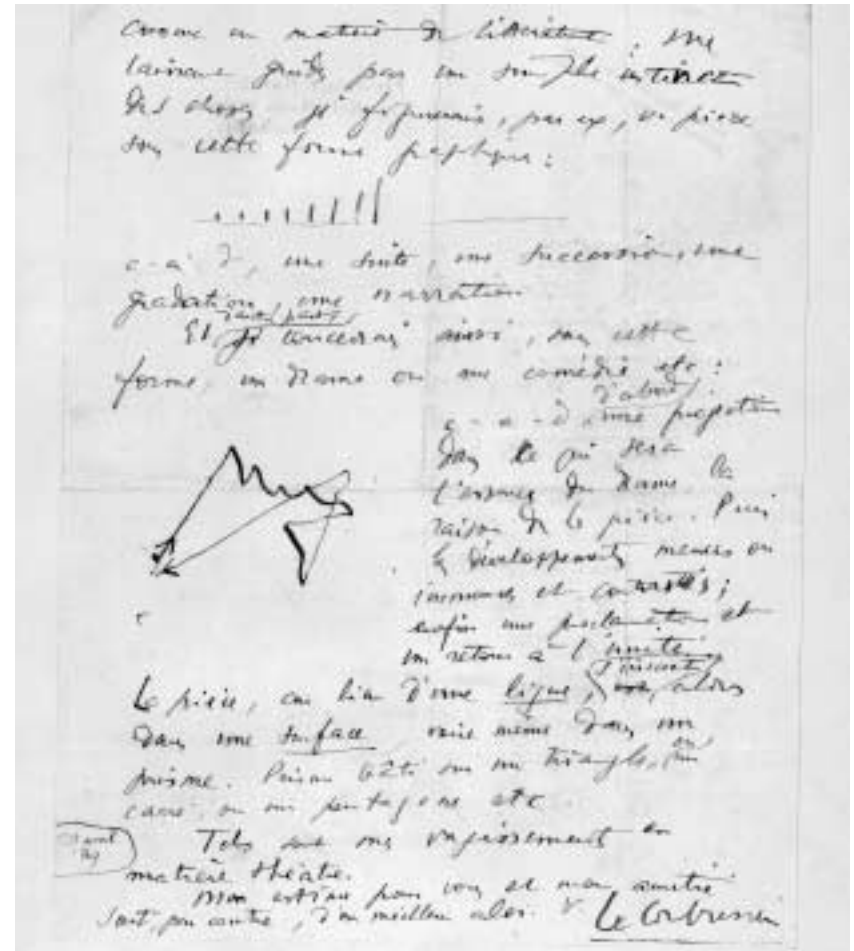 comme en matière de littérature ; me
laissant guider par un simple instinct
des choses, je figurerais, par ex, une pièce
sous cette forme graphique :
c-à-d, une suite, une succession, une
gradation, une narration.
Et je ainsi, sous cette
forme, un drame ou une comédie etc :
d'abord
c-a-d une
dans ce qui sera
l'essence du drame, la
raison de la pièce. Puis
les développements menus ou
et contrastés ;
enfin une proclamation et
un retour à l'unité.
s'inscrit
La pièce, au lieu d'une ligne, alors
dans une surface, voire même dans un
prisme. Prisme bâti sur un triangle, un
carré, ou un pentagone etc.
Tels sont mes vagissements en
matière théâtre.
Mon estime pour vous et mon amitié
sont, par contre, d'un meilleur aloi.
Le Corbusier